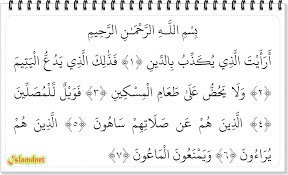 بِسْمِ اللَّهِ الرَّحْمَٰنِ الرَّحِيمِ
أَرَأَيْتَ الَّذِي يُكَذِّبُ بِالدِّينِ ﴿١﴾ فَذَٰلِكَ الَّذِي يَدُعُّ الْيَتِيمَ
﴿٢﴾ وَلَا يَحُضُّ عَلَىٰ طَعَامِ الْمِسْكِينِ ﴿٣﴾ فَوَيْلٌ لِّلْمُصَلِّينَ
﴿٤﴾ الَّذِينَ هُمْ عَن صَلَاتِهِمْ سَاهُونَ ﴿٥﴾ الَّذِينَ هُمْ
يُرَاءُونَ ﴿٦﴾ وَيَمْنَعُونَ الْمَاعُونَ ﴿٧﴾
islamdnet